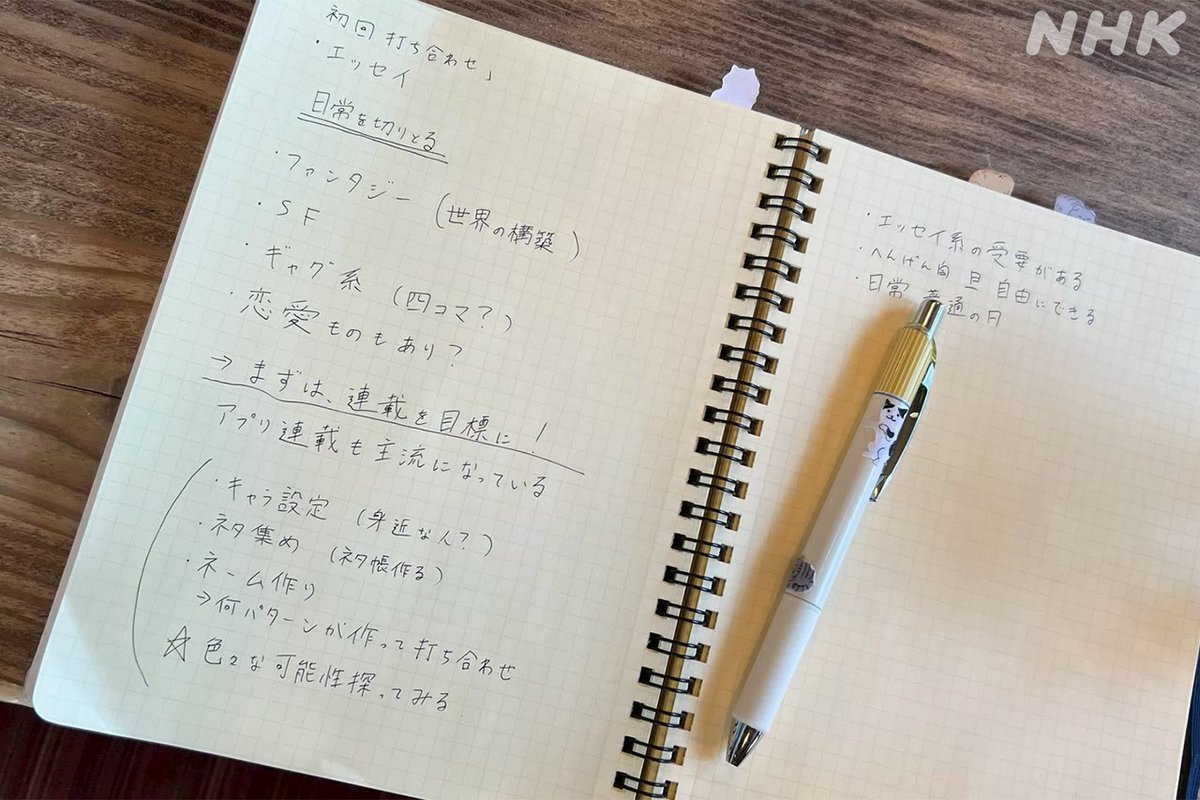 NHK
初回 打ち合わせ」
・エッセイ
日常を切りとる
・ファンタジー (世界の構築)
・SF
・ギャグ系 (四コマ?)
・恋愛ものもあり?
→まずは、連載を目標に!
アプリ連載も主流になっている
・キャラ設定 (身近な人?)
・ネタ集め (ネタ帳作る)
・ネーム作り
→何パターンか作って打ち合わせ
☆色々な可能性探ってみる
・エッセイ系の受要がある
・へんげん自 自由にできる
・日常 普通の